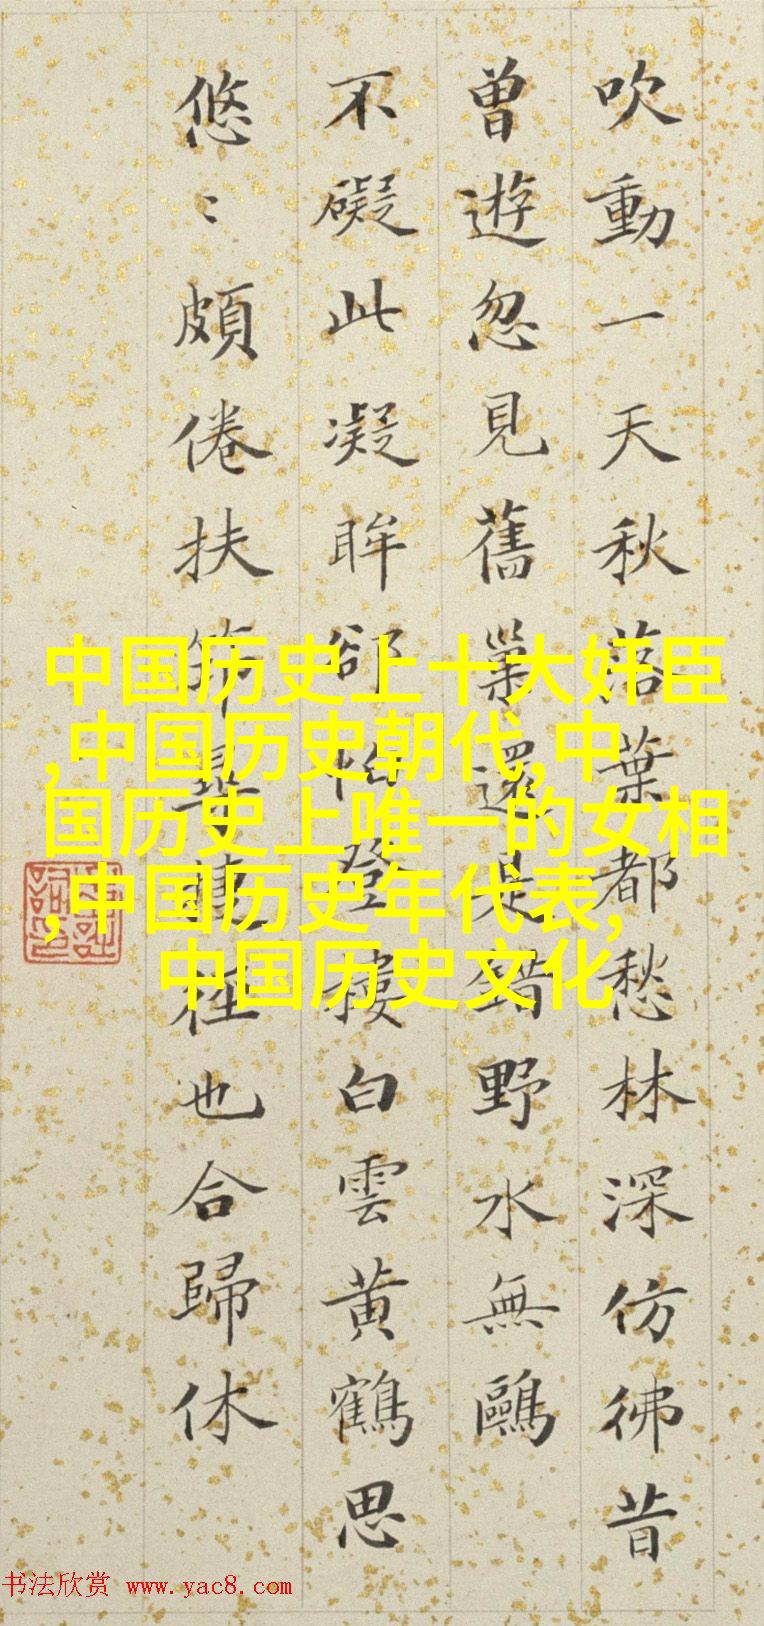 吹動一天秋落葉都愁林深仿彿昔
曾遊忽見舊巢還是錯野水無鷗
不礙此凝眸郤怕登樓白雲黄鶴思
悠〻頗倦扶筇尋捷徑也合歸休
中国历史上十大奸臣
,中国历史朝代,中
国历史上唯一的女相
,中国历史年代表,
中国历史文化
书法欣赏 www.yac8.com